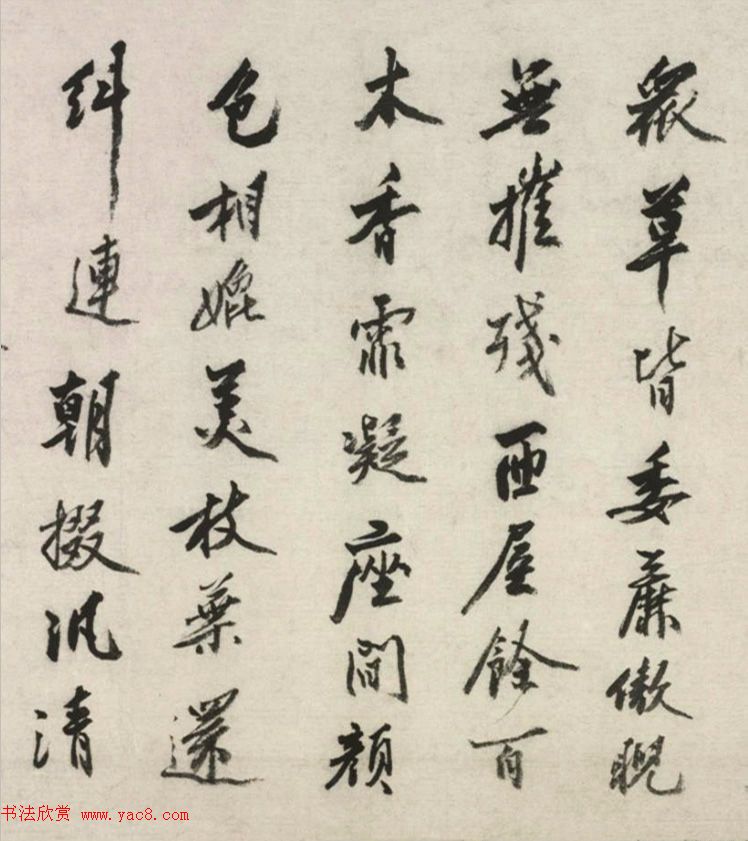 衆草皆委靡傲睨
無摧殘西屋餘百
木香霏凝座間顏
色相媲美枝葉還
糾連朝掇汎清
书法欣赏 www.yac8.com